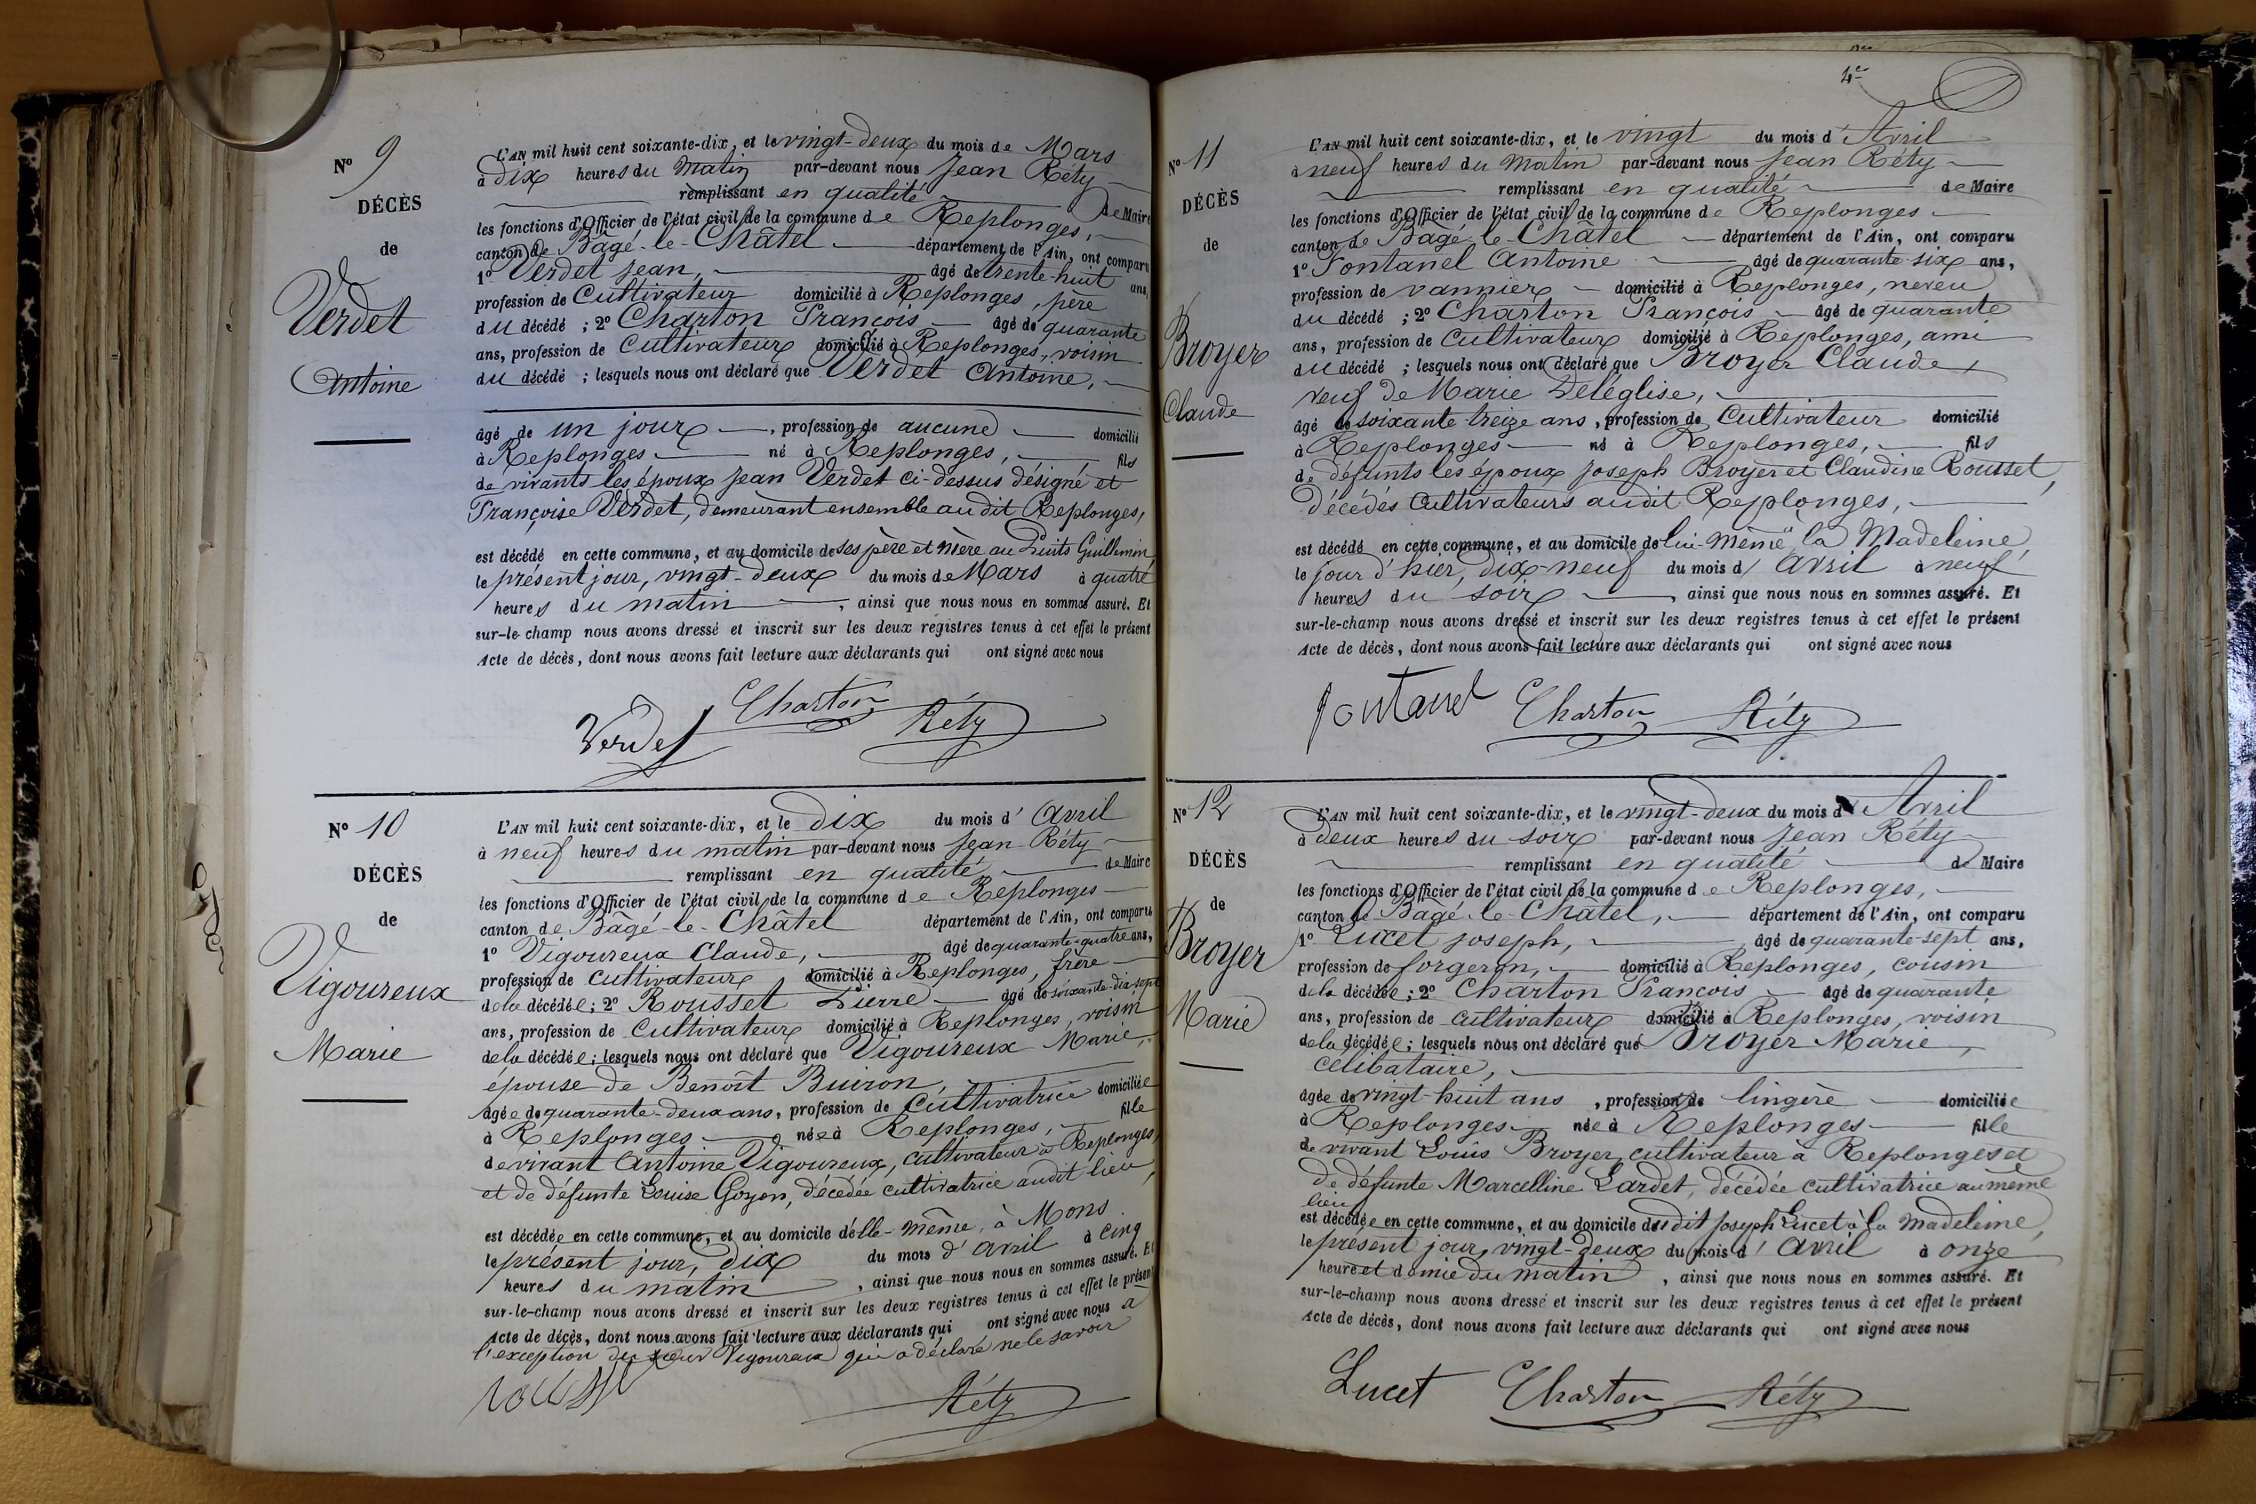 N° 9
DÉCÈS
de
Verdet
Antoine
L'AN mil huit cent soixante-dix, et le vingt-deux du mois de Mars
à dix heures du matin par-devant nous Jean Réty
remplissant en qualité de Maire
les fonctions d'Officier de l'état civil de la commune de Replonges,
canton de Bâgé-le-Châtel département de l'Ain, ont comparu
1° Verdet Jean, âgé de trente-huit ans,
profession de Cultivateur domicilié à Replonges, père
du décédé ; 2° Charton François âgé de quarante
ans, profession de Cultivateur domicilié à Replonges, voisin
du décédé ; lesquels nous ont déclaré que Verdet Antoine,
âgé de un jour, profession de aucune domicilié
à Replonges né à Replonges, fils
de vivants les époux Jean Verdet ci-dessus désigné et
Françoise Verdet, demeurant ensemble audit Replonges,
est décédé en cette commune, et au domicile de ses père et mère au Puits Guillemin
le présent jour, vingt-deux du mois de Mars à quatre
heures du matin, ainsi que nous nous en sommes assuré. Et
sur-le-champ nous avons dressé et inscrit sur les deux registres tenus à cet effet le présent
Acte de décès, dont nous avons fait lecture aux déclarants qui ont signé avec nous
Verdet Charton Réty
N° 10
DÉCÈS
de
Vigoureux
Marie
L'AN mil huit cent soixante-dix, et le dix du mois d'avril
à neuf heures du matin par-devant nous Jean Réty
remplissant en qualité de Maire
les fonctions d'Officier de l'état civil de la commune de Replonges
canton de Bâgé-le-Châtel département de l'Ain, ont comparu
1° Vigoureux Claude, âgé de quarante-quatre ans,
profession de cultivateur domicilié à Replonges, frère
de la décédée ; 2° Rousset Pierre âgé de soixante-dix sept
ans, profession de Cultivateur domicilié à Replonges, voisin
de la décédée ; lesquels nous ont déclaré que Vigoureux Marie,
épouse de Benoît Buiron,
âgée de quarante-deux ans, profession de Cultivatrice domiciliée
à Replonges née à Replonges, fille
de vivant Antoine Vigoureux, cultivateur à Replonges,
et de défunte Louise Goyon, décédée cultivatrice audit lieu,
est décédée en cette commune, et au domicile d'elle-même, à Mons
le présent jour, dix du mois d'avril à cinq
heures du matin, ainsi que nous nous en sommes assuré. Et
sur-le-champ nous avons dressé et inscrit sur les deux registres tenus à cet effet le présent
Acte de décès, dont nous avons fait lecture aux déclarants qui ont signé avec nous à
l'exception du sieur Vigoureux qui a déclaré ne le savoir
Réty
N° 11
DÉCÈS
de
Broyer
Claude
L'AN mil huit cent soixante-dix, et le vingt du mois d'Avril
à neuf heures du matin par-devant nous Jean Réty
remplissant en qualité de Maire
les fonctions d'Officier de l'état civil de la commune de Replonges
canton de Bâgé-le-Châtel département de l'Ain, ont comparu
1° Fontanel Antoine âgé de quarante-six ans,
profession de vannier domicilié à Replonges, neveu
du décédé ; 2° Charton François âgé de quarante
ans, profession de Cultivateur domicilié à Replonges, ami
du décédé ; lesquels nous ont déclaré que Broyer Claude,
veuf de Marie Deléglise,
âgé de soixante treize ans, profession de Cultivateur domicilié
à Replonges né à Replonges, fils
de défunts les époux Joseph Broyer et Claudine Rousset,
décédés Cultivateurs audit Replonges,
est décédé en cette commune, et au domicile de lui-même à la Madeleine,
le jour d'hier, dix-neuf du mois d'avril à neuf
heures du soir, ainsi que nous nous en sommes assuré. Et
sur-le-champ nous avons dressé et inscrit sur les deux registres tenus à cet effet le présent
Acte de décès, dont nous avons fait lecture aux déclarants qui ont signé avec nous
Fontanel Charton Réty
N° 12
DÉCÈS
de
Broyer
Marie
L'AN mil huit cent soixante-dix, et le vingt-deux du mois d'Avril
à deux heures du soir par-devant nous Jean Réty
remplissant en qualité de Maire
les fonctions d'Officier de l'état civil de la commune de Replonges,
canton de Bâgé-le-Châtel, département de l'Ain, ont comparu
1° Lucet Joseph, âgé de quarante-sept ans,
profession de forgeron, domicilié à Replonges, cousin
de la décédée ; 2° Charton François âgé de quarante
ans, profession de cultivateur domicilié à Replonges, voisin
de la décédée ; lesquels nous ont déclaré que Broyer Marie,
célibataire,
âgée de vingt-huit ans, profession de lingère domiciliée
à Replonges née à Replonges fille
de vivant Louis Broyer, cultivateur à Replonges et
de défunte Marcelline Lardet, décédée cultivatrice au même
lieu
est décédée en cette commune, et au domicile du dit Joseph Lucet à la Madeleine,
le présent jour, vingt-deux du mois d'avril à onze
heure et demie du matin, ainsi que nous nous en sommes assuré. Et
sur-le-champ nous avons dressé et inscrit sur les deux registres tenus à cet effet le présent
Acte de décès, dont nous avons fait lecture aux déclarants qui ont signé avec nous
Lucet Charton Réty